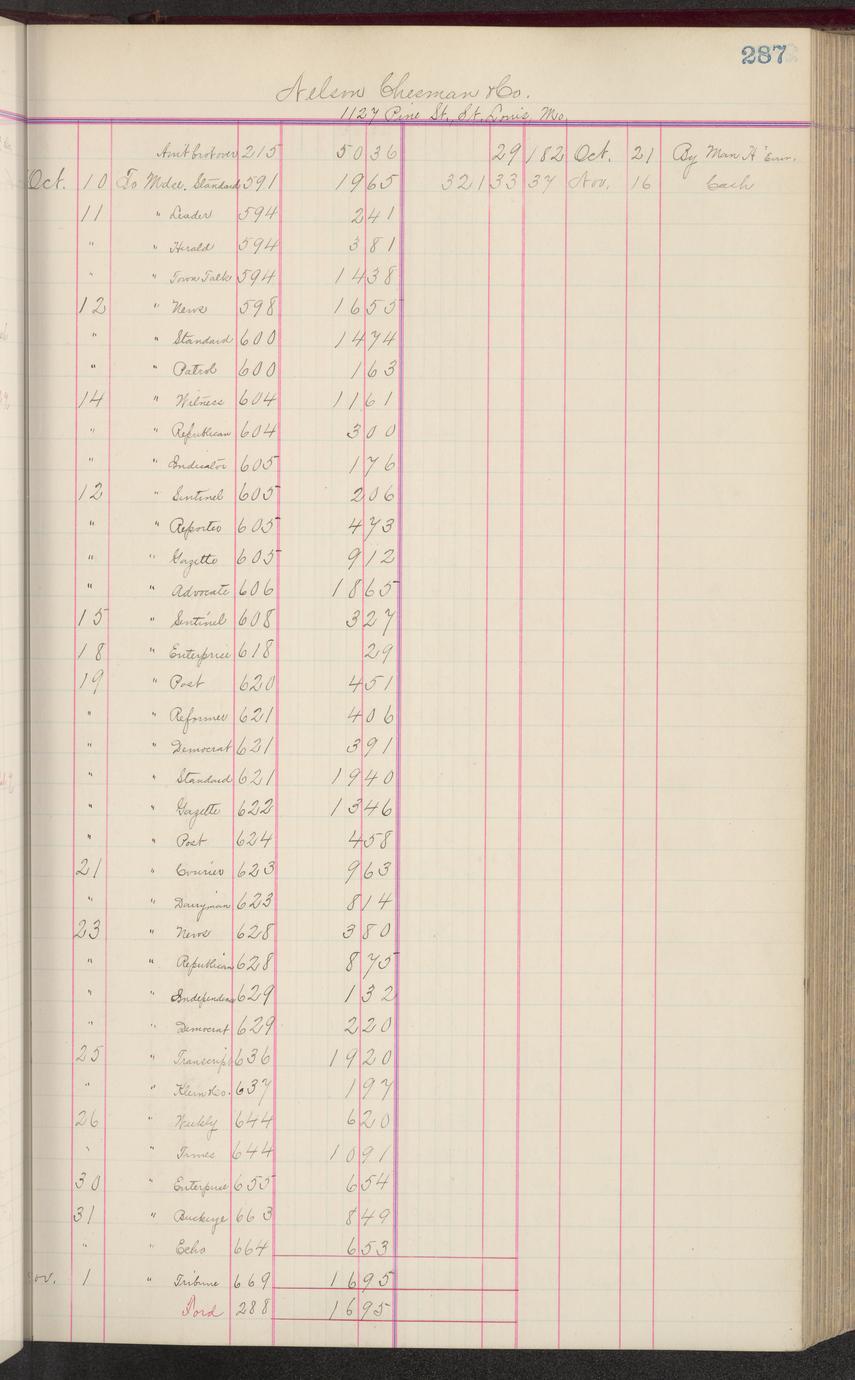 287
Nelson Chesman & Co.
1127 Pine St., St. Louis, Mo.
Amt brot over 215 50 36 29 182 Oct. 21 By Man H
Oct. 10 To Mdse. Standard 591 19 65 321 33 37 Nov. 16 Cash
11 " Leader 594 2 41
" " Herald 594 3 81
" " Town Talk 594 14 38
12 " News 598 16 55
" " Standard 600 14 74
" " Patrol 600 1 63
14 " Witness 604 11 61
" " Republican 604 3 00
" " Indicator 605 1 76
12 " Sentinel 605 2 06
" " Reporter 605 4 73
" " Gazette 605 9 12
" " Advocate 606 18 65
15 " Sentinel 608 3 27
18 " Enterprise 618 29
19 " Post 620 4 51
" " Reformer 621 4 06
" " Democrat 621 3 91
" " Standard 621 19 40
" " Gazette 622 13 46
" " Post 624 4 58
21 " Courier 623 9 63
" " Dairyman 623 8 14
23 " News 628 3 80
" " Republican 628 8 75
" " Independent 629 1 32
" " Democrat 629 2 20
25 " Transcript 636 19 20
" " 637 1 97
26 " Weekly 644 6 20
" " Times 644 10 91
30 " Enterprise 655 6 54
31 " Buckeye 663 8 49
" " Echo 664 6 53
ov. 1 " Tribune 669 16 95
Ford 288 16 95